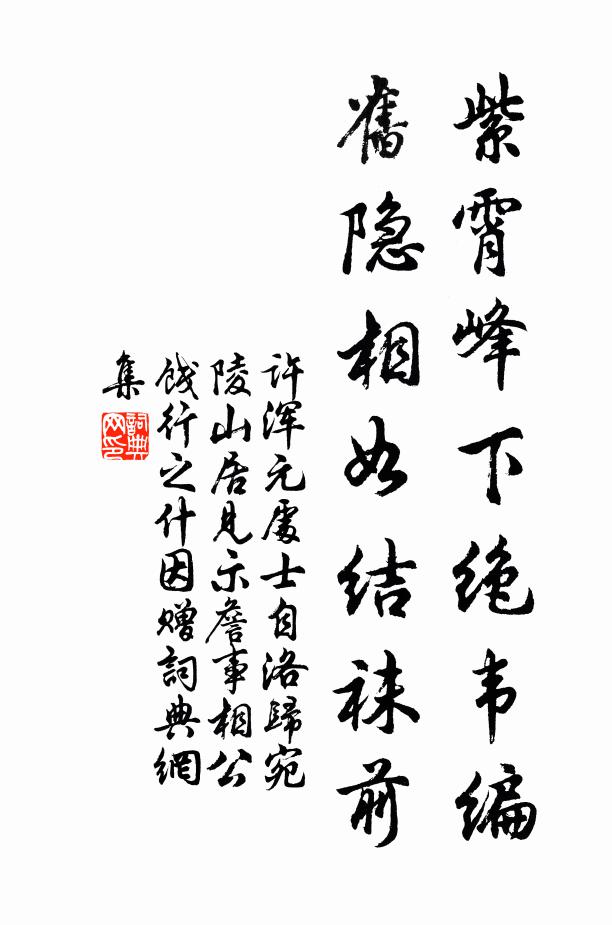 紫霄峰下绝韦编
旧隐相如结袜前
许浑元处士自洛归宛
陵山居见示詹事相公
饯行之什因赠词典网
集
词典网印